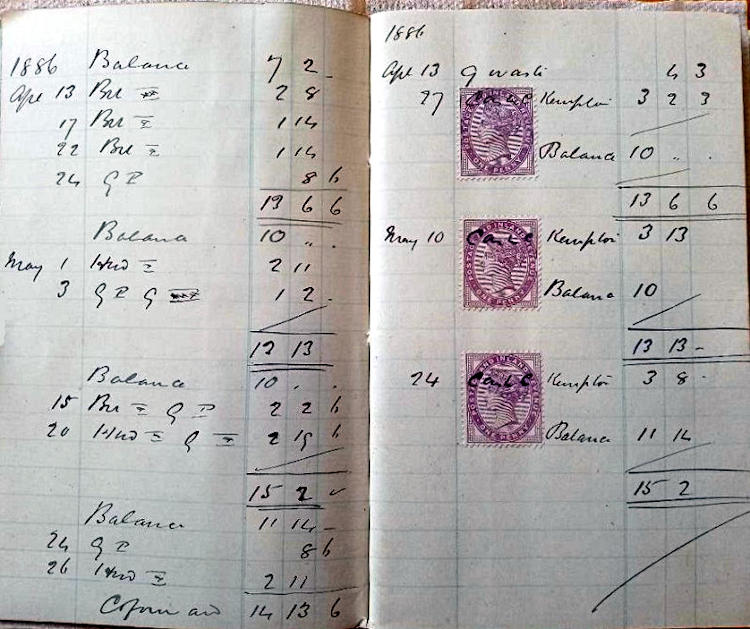 1886 Balance 7 2 -
Apr 13 Bre I 2 8
17 Bre I 1 14
22 Bre I 1 14
24 G P 8 6
13 6 6
Balance 10 " .
May 1 I 2 11
3 G P G 1 2 .
13 13
Balance 10 . .
15 Bre I G P 2 2 6
20 I G I 2 19 6
15 2
Balance 11 14 -
24 G P 8 6
26 I 2 11
14 13 6
1886
Apr 13 4 3
27 Kempton 3 2 3
Balance 10 " .
13 6 6
May 10 Kempton 3 13
Balance 10
13 13 -
24 Kempton 3 8 -
Balance 11 14
15 2
POSTAGE AND INLAND REVENUE
ONE PENNY
POSTAGE AND INLAND REVENUE
ONE PENNY
POSTAGE AND INLAND REVENUE
ONE PENNY